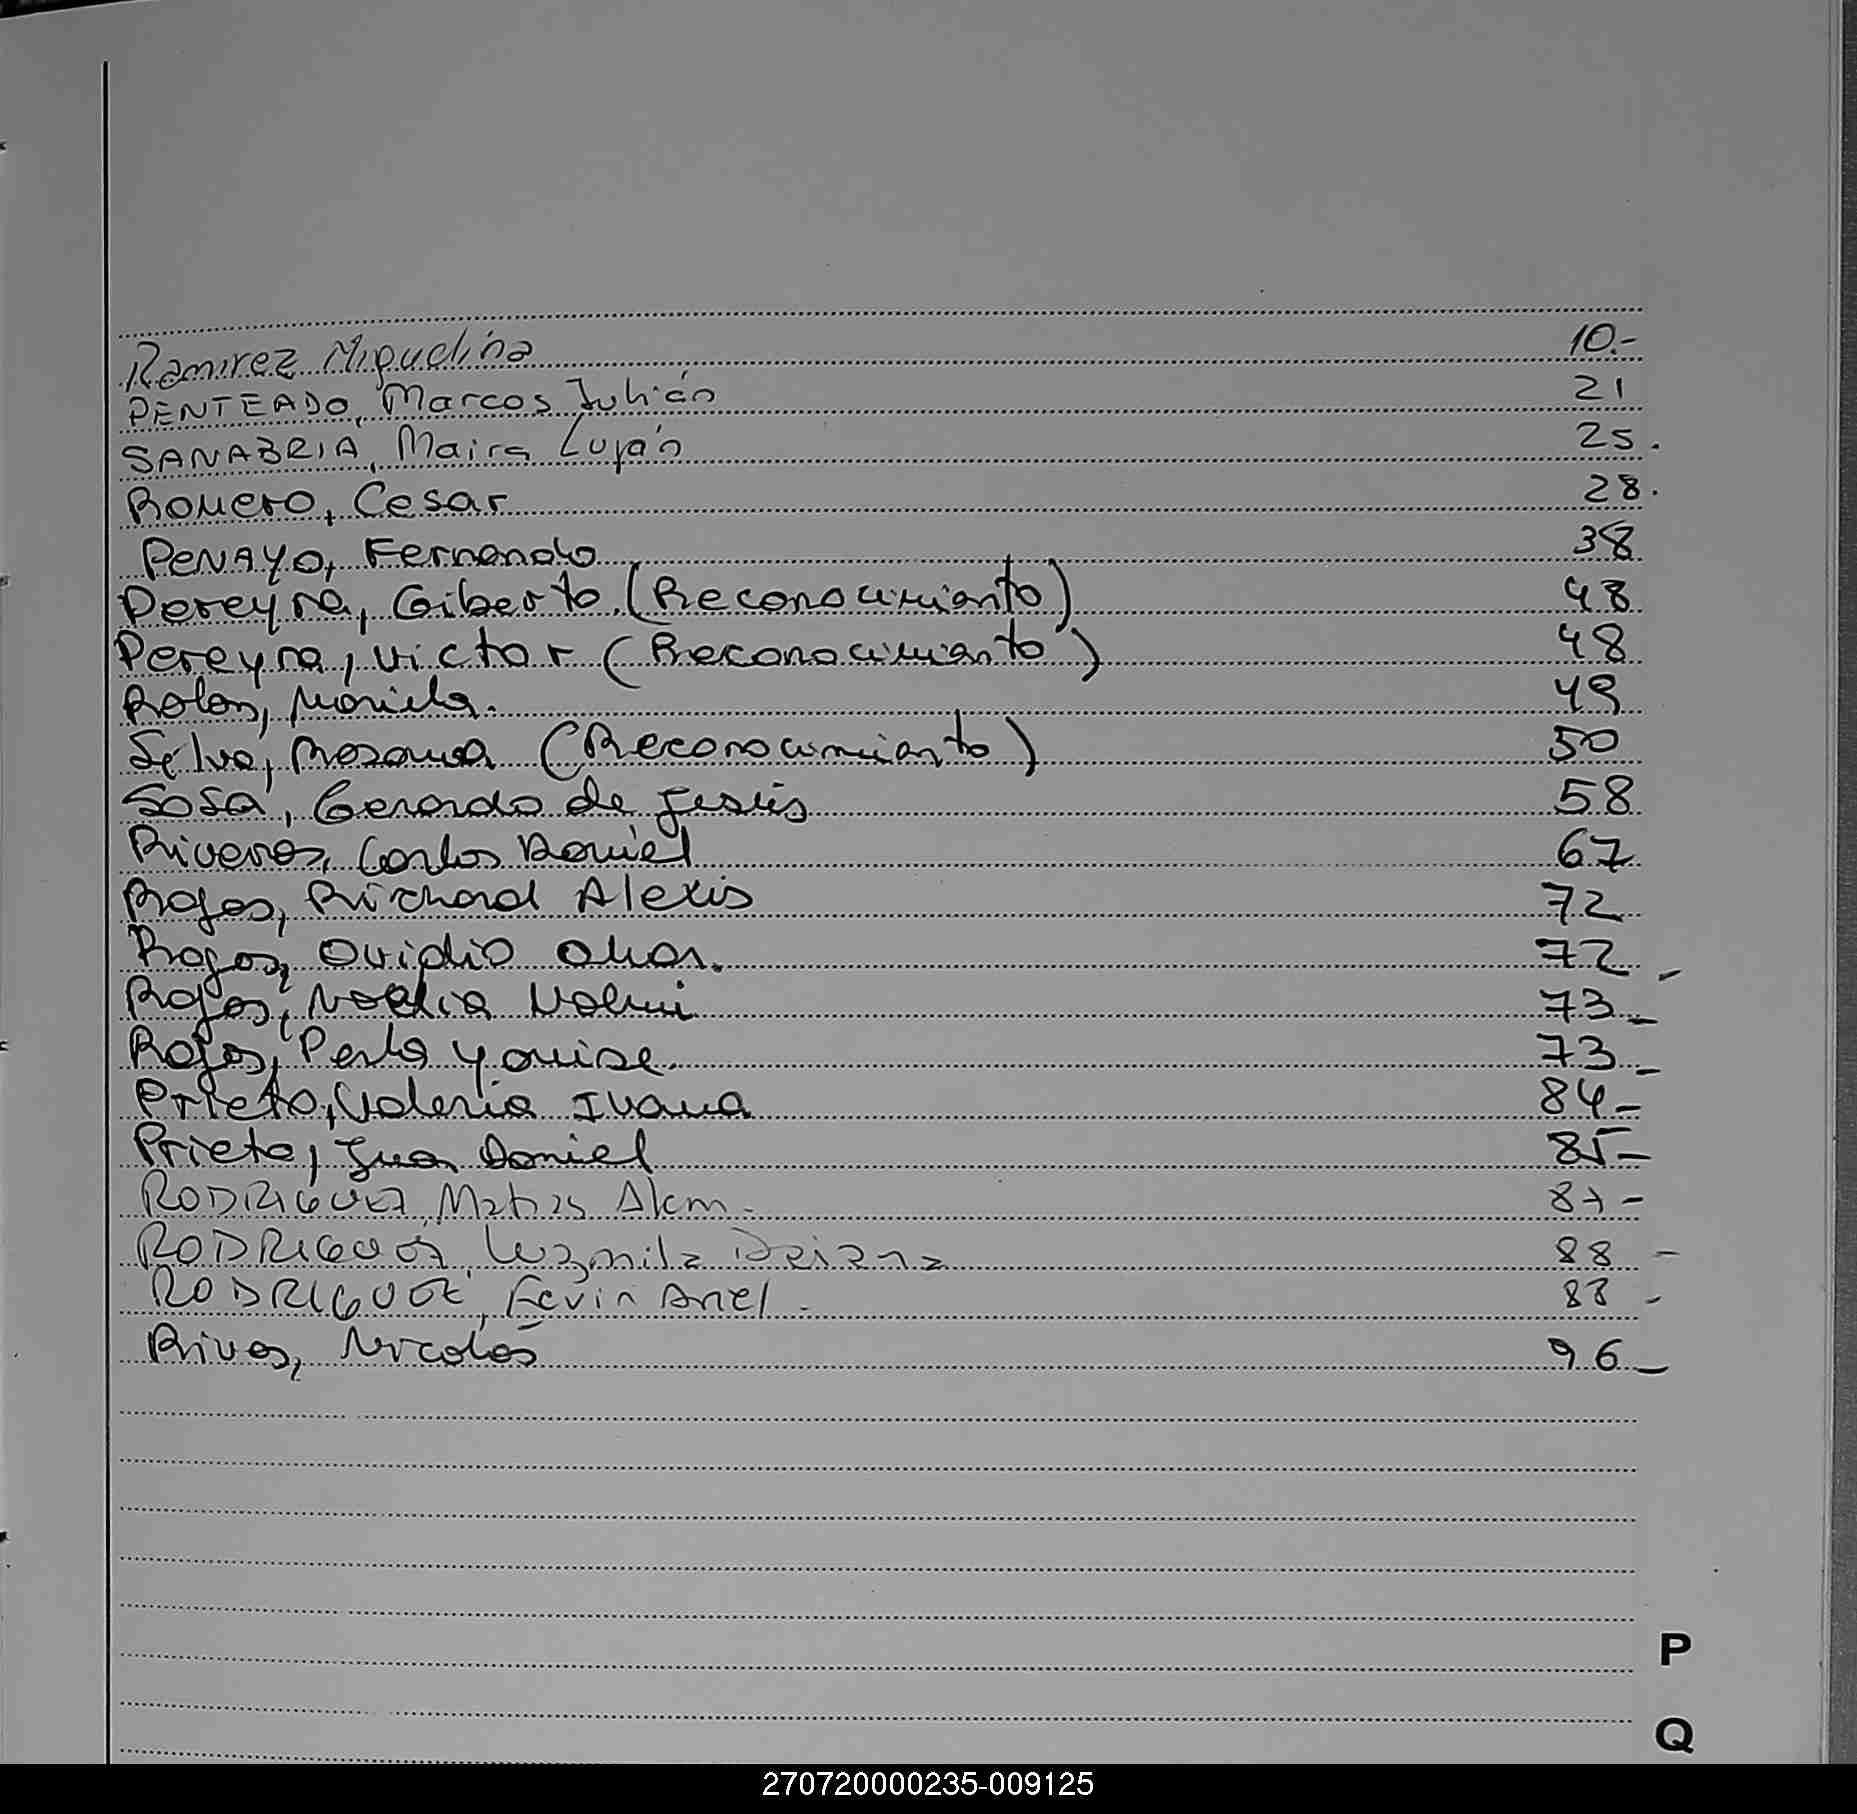 Ramirez Miguelina 10.-
PENTEADO, Marcos Julián 21
SANABRIA, Maira Luján 25.
Romero, Cesar 28.
PENAYO, Fernando 38
Pereyra, Giberto (Reconocimiento) 48
Pereyra, Victor (Reconocimiento) 48
Rolon, Mariela. 49
Silva, Rosanna (Reconocimiento) 50
Sosa, Gerardo de Jesús 58
Riveros, Carlos Daniel 67
Rojas, Richard Alexis 72
Rojas, Ovidio Omar. 72 -
Rojas, Noelia Noemi 73-
Rojas, Perla Yanise. 73-
Prieto, Valeria Ivana 84-
Prieto, Juan Daniel 85-
RODRIGUEZ, Matias Alem. 87-
RODRIGUEZ, Luzmila Daiana 88 -
RODRIGUEZ, Kevin Ariel. 88 -
Rivas, Nicolás 96-
P
Q
270720000235-009125